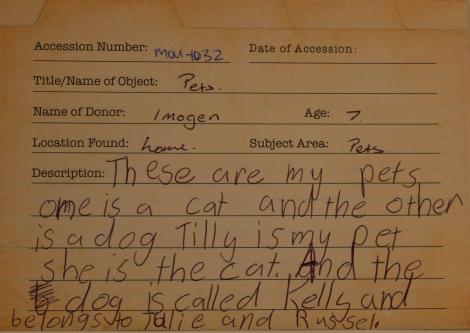 Accession Number: mou-1032 Date of Accession:
Title/Name of Object: Pets.
Name of Donor: Imogen Age: 7.
Location Found: home. Subject Area: Pets.
Description: These are my pets
ome is a cat and the other
is a dog Tilly is my Pet
she is the cat. And the
dog is called Kelly and
belongs to Julie and Russel.